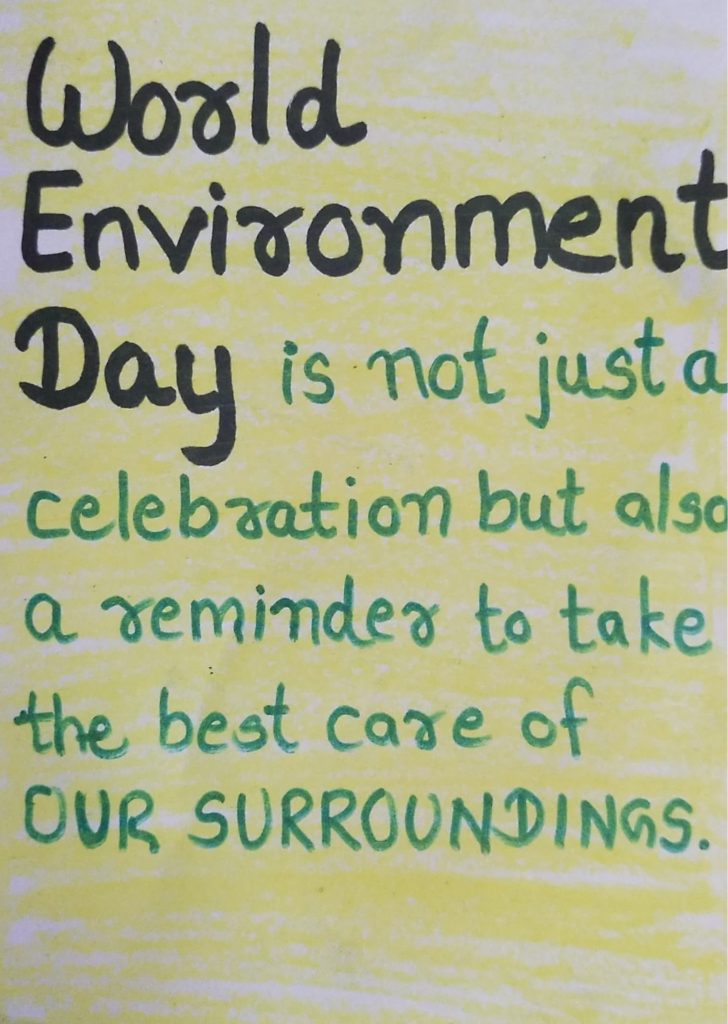 World
Environment
Day is not just a
celebration but also
a reminder to take
the best care of
OUR SURROUNDINGS.